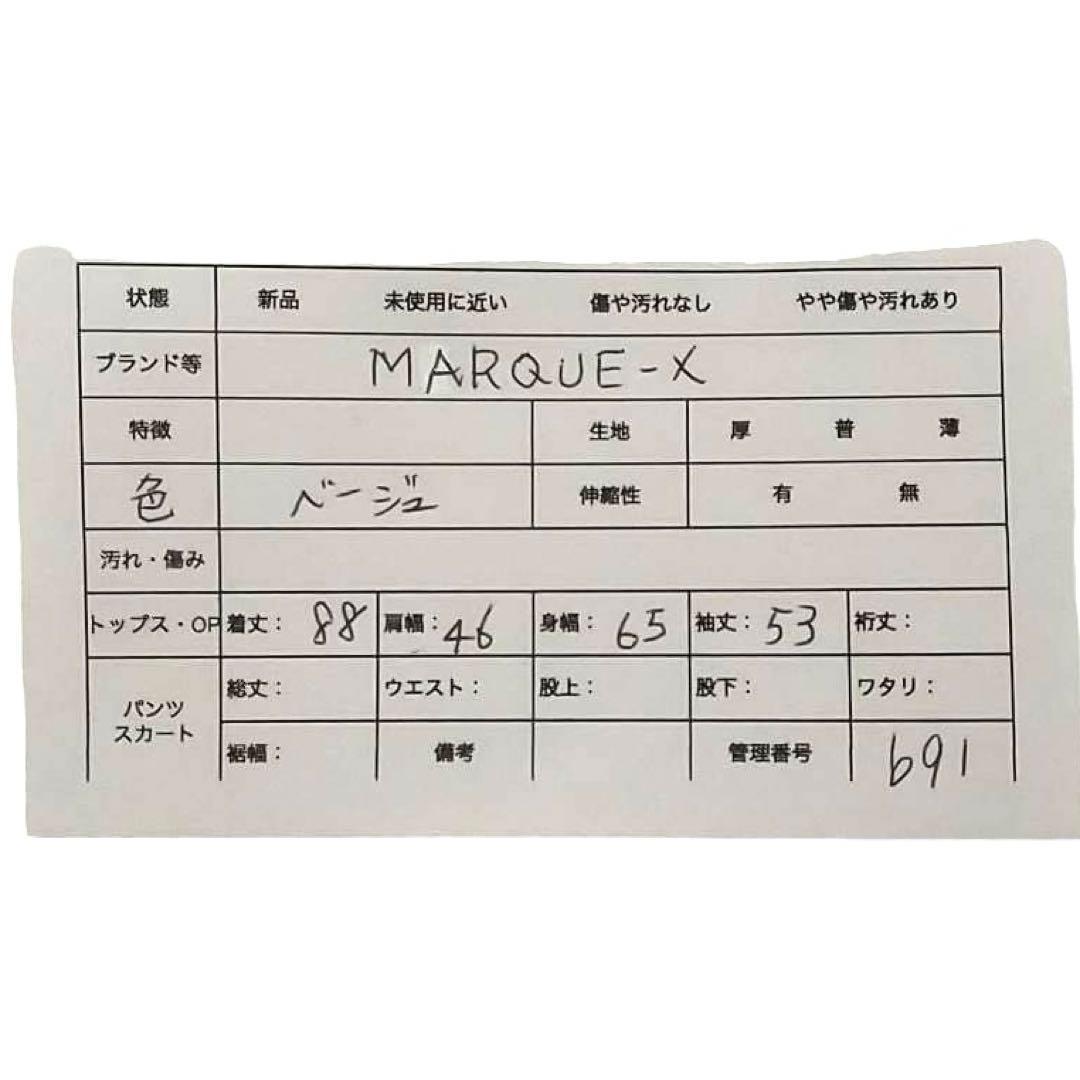 状態 新品 未使用に近い 傷や汚れなし やや傷や汚れあり
ブランド等 MARQUE-X
特徴 生地 厚 普 薄
色 ベージュ 伸縮性 有 無
汚れ・傷み
トップス・OP 着丈: 88 肩幅: 46 身幅: 65 袖丈: 53 裄丈:
パンツ
スカート
総丈: ウエスト: 股上: 股下: ワタリ:
裾幅: 備考 管理番号 691